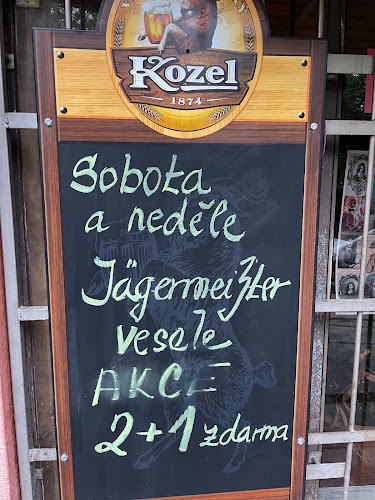 Kozel
1874
Sobota
a neděle
Jägermeister
veselé
AKCE
2+1 zdarma